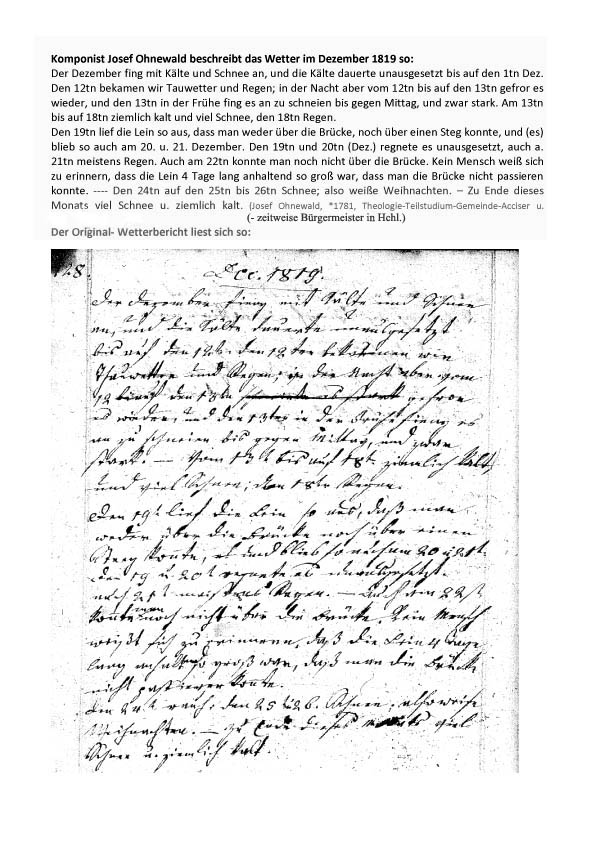 Komponist Josef Ohnewald beschreibt das Wetter im Dezember 1819 so:
Der Dezember fing mit Kälte und Schnee an, und die Kälte dauerte unausgesetzt bis auf den 1tn Dez.
Den 12tn bekamen wir Tauwetter und Regen; in der Nacht aber vom 12tn bis auf den 13tn gefror es
wieder, und den 13tn in der Frühe fing es an zu schneien bis gegen Mittag, und zwar stark. Am 13tn
bis auf 18tn ziemlich kalt und viel Schnee, den 18tn Regen.
Den 19tn lief die Lein so aus, dass man weder über die Brücke, noch über einen Steg konnte, und (es)
blieb so auch am 20. u. 21. Dezember. Den 19tn und 20tn (Dez.) regnete es unausgesetzt, auch a.
21tn meistens Regen. Auch am 22tn konnte man noch nicht über die Brücke. Kein Mensch weiß sich
zu erinnern, dass die Lein 4 Tage lang anhaltend so groß war, dass man die Brücke nicht passieren
konnte. ---- Den 24tn auf den 25tn bis 26tn Schnee; also weiße Weihnachten. – Zu Ende dieses
Monats viel Schnee u. ziemlich kalt. (Josef Ohnewald, *1781, Theologie-Teilstudium-Gemeinde-Acciser u.
(- zeitweise Bürgermeister in Hchl.)
Der Original- Wetterbericht liest sich so:
28. Dec. 1819.
Der Dezember fieng mit Kälte und Schnee
an, und die Kälte dauerte unausgesetzt
bis auf den 12t. Den 12ten bekammen wir
Thauwetter und Regen; in der Nacht aber vom
12 den 13tn gefror
es wieder, und den 13ten in der Frühe fieng es
an zu schneien bis gegen Mittag, und zwar
stark. — Vom 13t bis auf 18t. ziemlich kalt,
und viel Schnee, den 18tn Regen.
Den 19t. lief die Lein so aus, daß man
weder über die Brücke noch über einen
Steg konte, und blieb so auch am 20 u. 21t.
Den 19 u. 20t regnete es unausgesetzt.
auch 21t meistens Regen. — Auch am 22st
konte man noch nicht über die Brücke. Kein Mensch
weißt sich zu erinnern, daß die Lein 4 Tage
lang so groß war, daß man die Brücke
nicht konte.
Den 24t auf den 25 26. Schnee, also weiße
Weihnachten. — Zu Ende dieses Monats viel
Schnee u. ziemlich kalt.